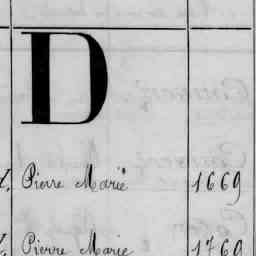 D
Pierre Marie 1669
Pierre Marie 1769